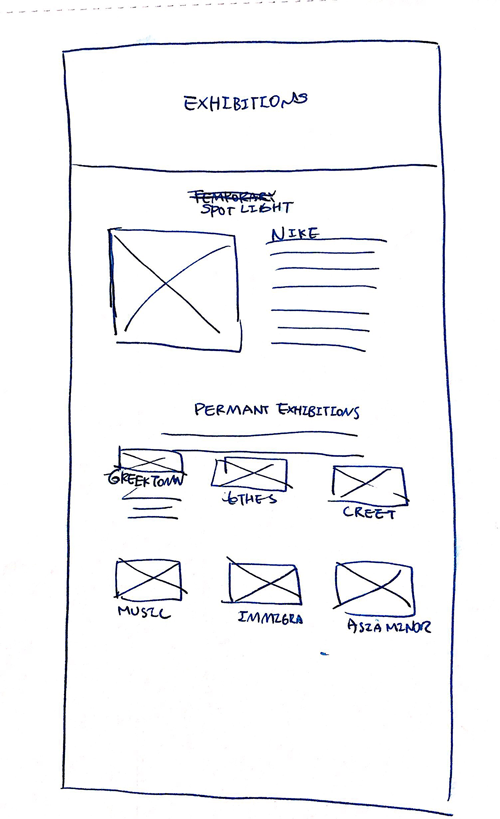 EXHIBITIONS
TEMPORARY
SPOT LIGHT
NIKE
PERMANT EXHIBITIONS
GREEKTOWN
CREET
MUSIC
IMMIGRA
ASIA MINOR